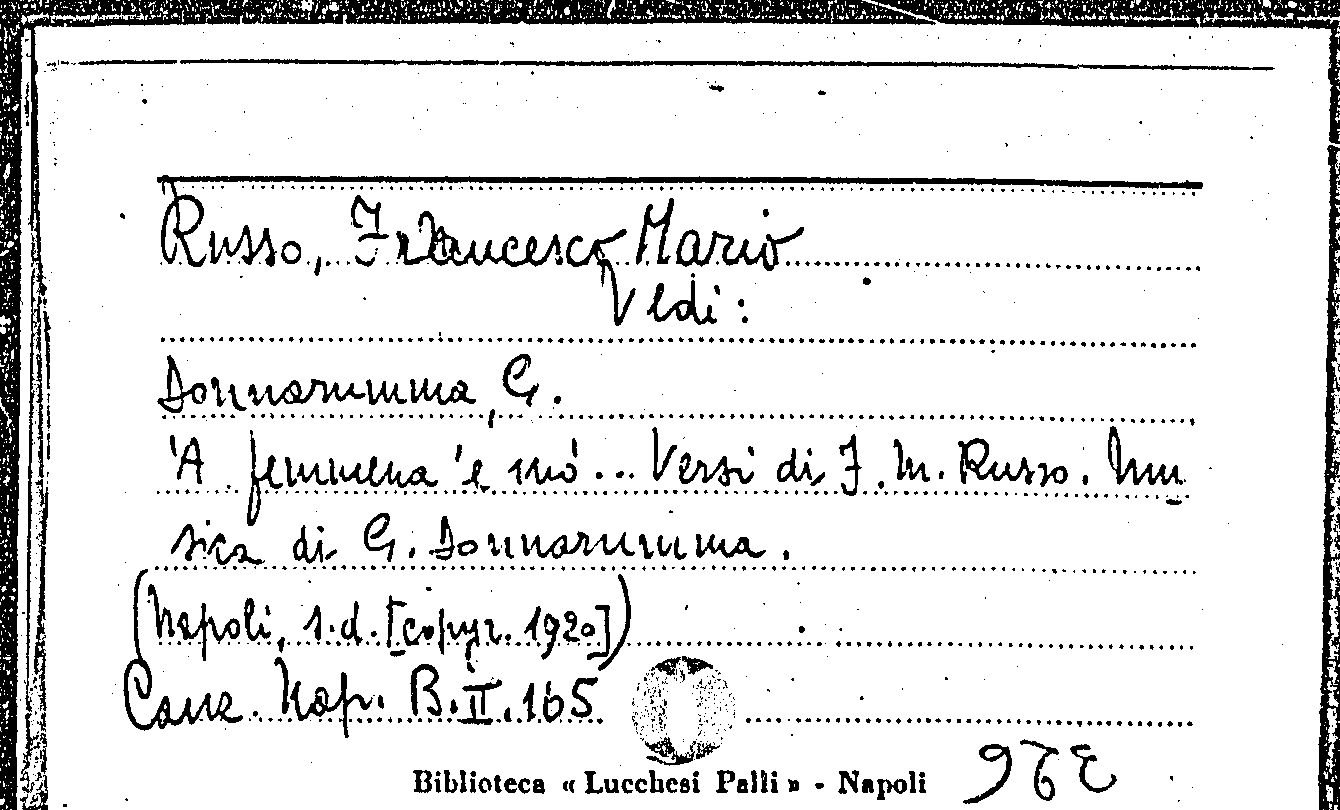 Russo, Francesco Mario
Vedi:
Donnarumma, G.
'A femmena 'e mò... Versi di F. M. Russo. Mu
sica di G. Donnarumma.
(Napoli, s.d. [copyr. 1920])
Canz. Nap. B.II.165
Biblioteca « Lucchesi Palli » - Napoli